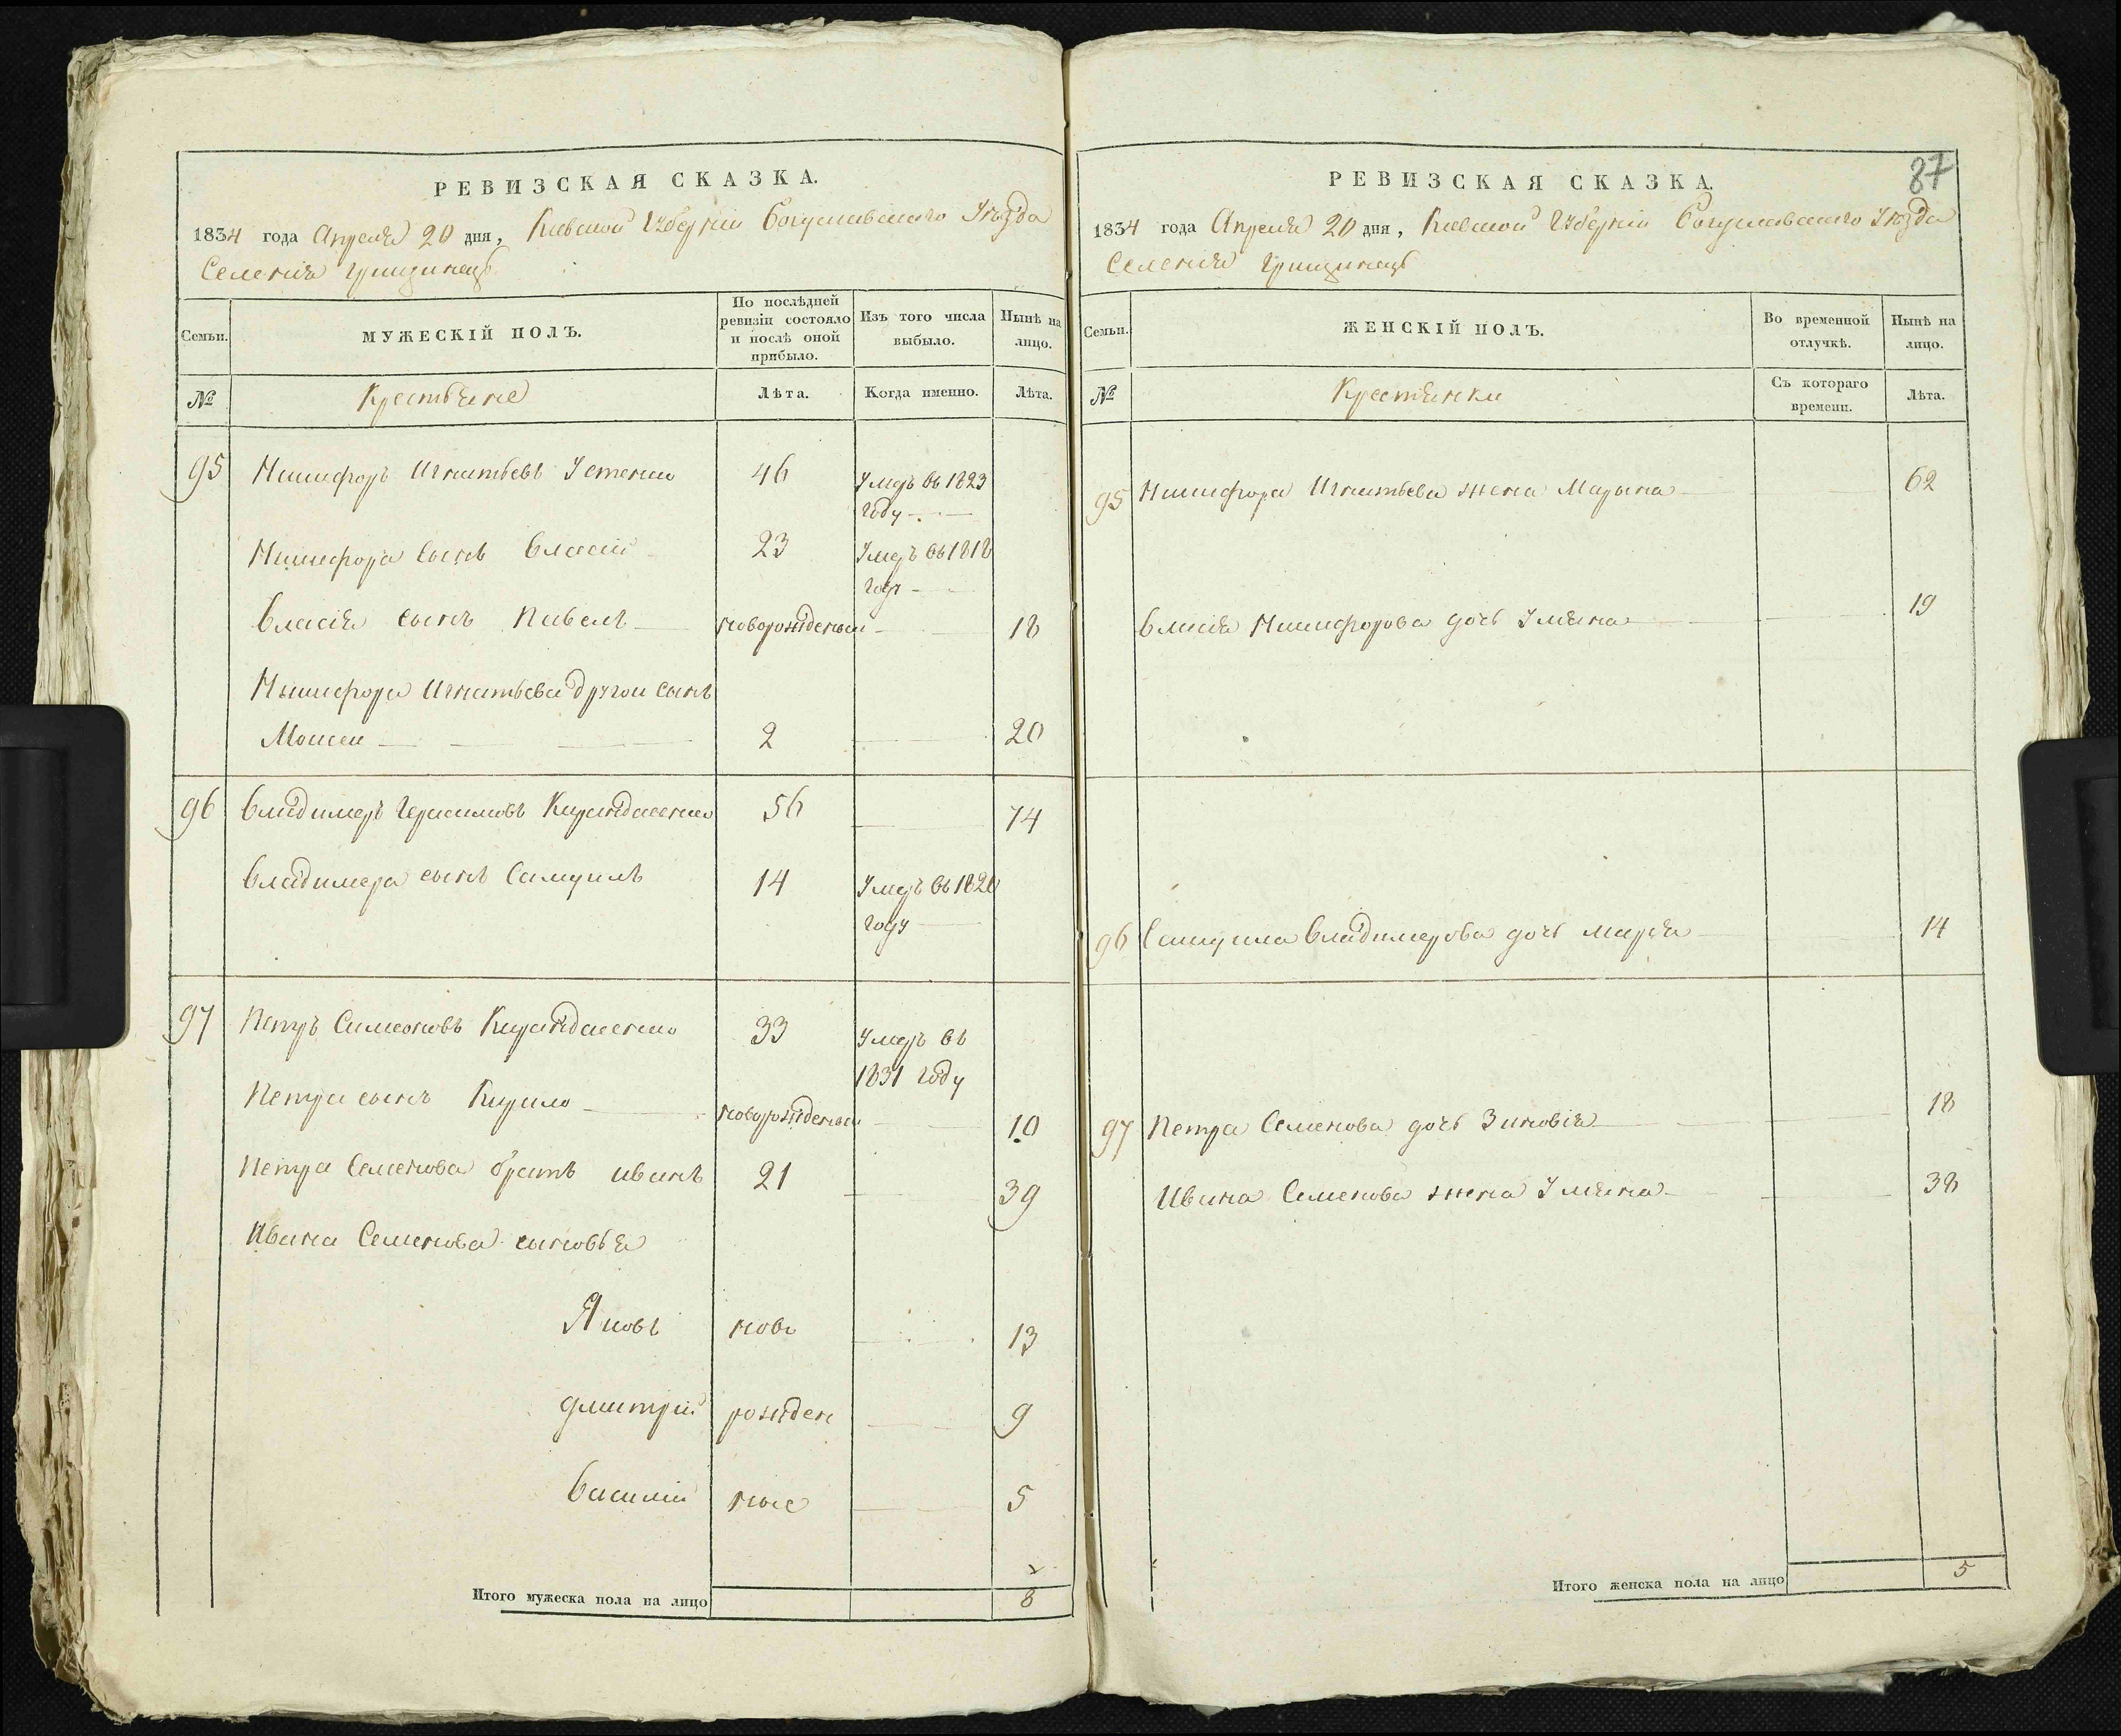 РЕВИЗСКАЯ СКАЗКА.
1834 года Апреля 20 дня, Киевской Губерніи Богуславского Уѣзда
Селенія Грищинецъ
Семьи.
МУЖЕСКІЙ ПОЛЪ.
По послѣдней ревизіи состояло и послѣ оной прибыло.
Изъ того числа выбыло.
Нынѣ на лицо.
№
Крестьяне
Лѣта.
Когда именно.
Лѣта.
95 Никифоръ Игнатьевъ Устенко 46 Умеръ въ 1823
году
Никифора сынъ Власій 23 Умеръ въ 1818
годе
Власія сынъ Павелъ новорожденый 18
Никифора Игнатьева другой сынъ
Моисей 2 20
96 Владимеръ Герасимовъ 56 74
Владимера сынъ Самуилъ 14 Умеръ въ 1820
году
97 Петръ Симеоновъ 33 Умеръ въ
1831 году
Петра сынъ Кирило новорожденый 10
Петра Семенова братъ Иванъ 21 39
Ивана Семенова сыновья
Яковъ ново 13
Дмитрій рожден 9
Василій ные 5
Итого мужеска пола на лицо 8
87
РЕВИЗСКАЯ СКАЗКА.
1834 года Апреля 20 дня, Киевской Губерніи Богуславского Уѣзда
Селенія Грищинецъ
Семьи.
ЖЕНСКІЙ ПОЛЪ.
Во временной отлучкѣ.
Нынѣ на лицо.
№
Крестьянки
Съ котораго времени.
Лѣта.
95 Никифора Игнатьева жена Марына 62
Власія Никифорова дочь Уляна 19
96 Самуила Владимерова дочь Марія 14
97 Петра Семенова дочь Зиновія 18
Ивана Семенова жена Уляна 38
Итого женска пола на лицо 5